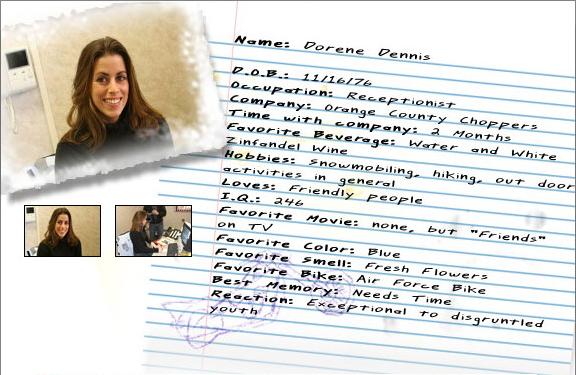 Name: Dorene Dennis
D.O.B.: 11/16/76
Occupation: Receptionist
Company: Orange County Choppers
Time with company: 2 Months
Favorite Beverage: Water and White
Zinfandel Wine
Hobbies: Snowmobiling, hiking, out door
activities in general
Loves: Friendly people
I.Q.: 246
Favorite Movie: none, but "Friends"
on TV
Favorite Color: Blue
Favorite Smell: Fresh Flowers
Favorite Bike: Air Force Bike
Best Memory: Needs Time
Reaction: Exceptional to disgruntled
youth